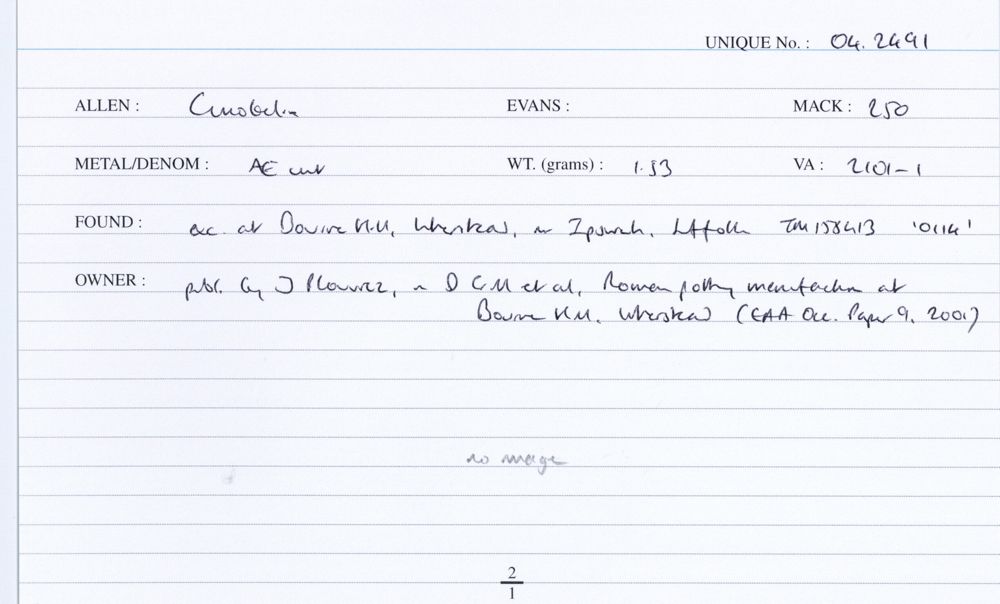 UNIQUE No. : 04.2491
ALLEN : Cunobelin EVANS : MACK : 250
METAL/DENOM : AE unit WT. (grams) : 1.53 VA : 2101-1
FOUND : exc. at Bourne Hill, Wherstead, nr Ipswich, Suffolk TM 158413 '0114'
OWNER : publ. by J Plouviez, in D G M et al, Roman pottery manufacture at
Bourne Hill, Wherstead (EAA Occ. Paper 9, 2001)
no image
2
1